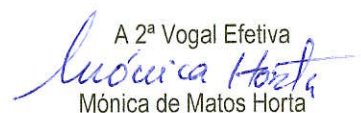 A 2ª Vogal Efetiva
Mónica Horta
Mónica de Matos Horta